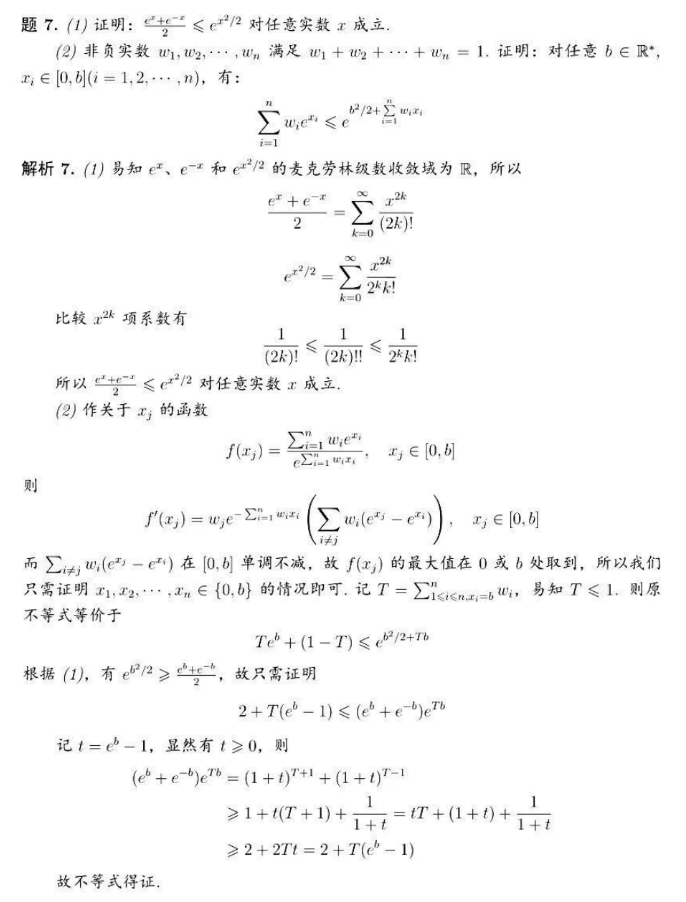 题 7. (1) 证明：$\frac{e^x+e^{-x}}{2} \leqslant e^{x^2/2}$ 对任意实数 $x$ 成立.
(2) 非负实数 $w_1, w_2, \cdots, w_n$ 满足 $w_1 + w_2 + \cdots + w_n = 1$. 证明：对任意 $b \in \mathbb{R}^*$,
$x_i \in [0, b](i = 1, 2, \cdots, n)$，有：
$$\sum_{i=1}^{n} w_i e^{x_i} \leqslant e^{b^2/2+\sum_{i=1}^{n} w_i x_i}$$
解析 7. (1) 易知 $e^x$、$e^{-x}$ 和 $e^{x^2/2}$ 的麦克劳林级数收敛域为 $\mathbb{R}$，所以
$$\frac{e^x + e^{-x}}{2} = \sum_{k=0}^{\infty} \frac{x^{2k}}{(2k)!}$$
$$e^{x^2/2} = \sum_{k=0}^{\infty} \frac{x^{2k}}{2^k k!}$$
比较 $x^{2k}$ 项系数有
$$\frac{1}{(2k)!} \leqslant \frac{1}{(2k)!!} \leqslant \frac{1}{2^k k!}$$
所以 $\frac{e^x+e^{-x}}{2} \leqslant e^{x^2/2}$ 对任意实数 $x$ 成立.
(2) 作关于 $x_j$ 的函数
$$f(x_j) = \frac{\sum_{i=1}^{n} w_i e^{x_i}}{e^{\sum_{i=1}^{n} w_i x_i}}, \quad x_j \in [0, b]$$
则
$$f'(x_j) = w_j e^{-\sum_{i=1}^{n} w_i x_i} \left( \sum_{i \neq j} w_i(e^{x_j} - e^{x_i}) \right), \quad x_j \in [0, b]$$
而 $\sum_{i \neq j} w_i(e^{x_j} - e^{x_i})$ 在 $[0, b]$ 单调不减，故 $f(x_j)$ 的最大值在 0 或 $b$ 处取到，所以我们
只需证明 $x_1, x_2, \cdots, x_n \in \{0, b\}$ 的情况即可. 记 $T = \sum_{1 \leqslant i \leqslant n, x_i = b}^{n} w_i$，易知 $T \leqslant 1$. 则原
不等式等价于
$$Te^b + (1 - T) \leqslant e^{b^2/2+Tb}$$
根据 (1)，有 $e^{b^2/2} \geqslant \frac{e^b+e^{-b}}{2}$，故只需证明
$$2 + T(e^b - 1) \leqslant (e^b + e^{-b})e^{Tb}$$
记 $t = e^b - 1$，显然有 $t \geqslant 0$，则
$$(e^b + e^{-b})e^{Tb} = (1 + t)^{T+1} + (1 + t)^{T-1}$$
$$\geqslant 1 + t(T + 1) + \frac{1}{1 + t} = tT + (1 + t) + \frac{1}{1 + t}$$
$$\geqslant 2 + 2Tt = 2 + T(e^b - 1)$$
故不等式得证.